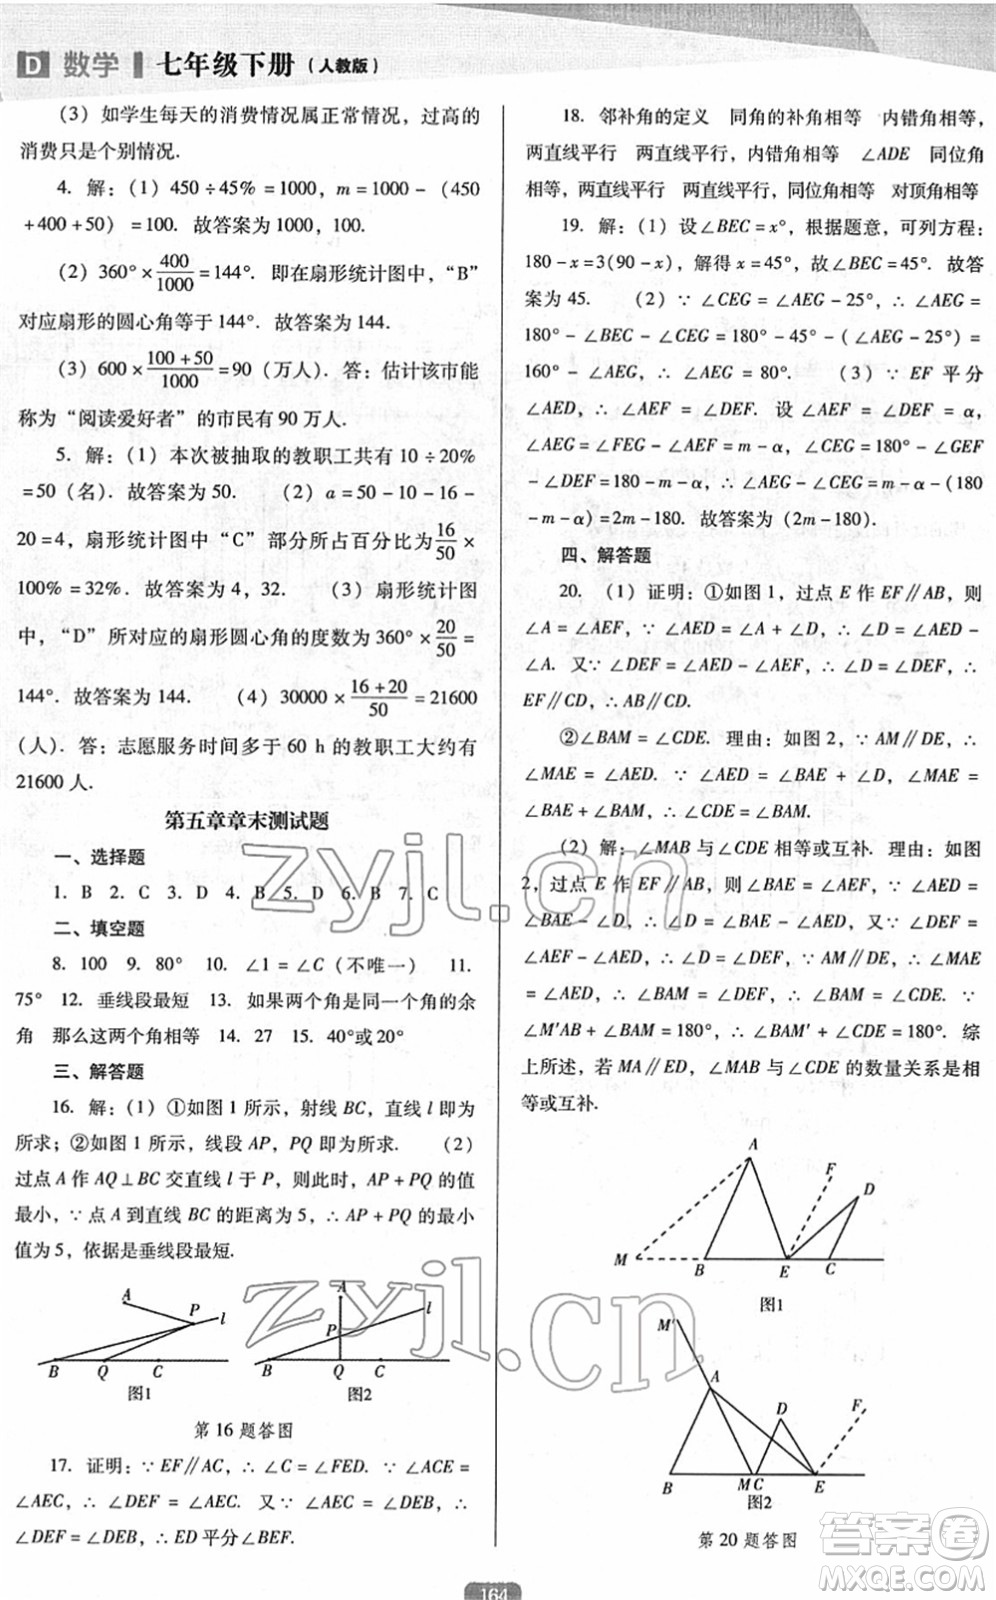 D 数学 七年级下册（人教版）
（3）如学生每天的消费情况属正常情况，过高的
消费只是个别情况.
4. 解：（1）450÷45%=1000，m=1000-（450
+400+50）=100. 故答案为1000，100.
（2）360°×400/1000=144°. 即在扇形统计图中，“B”
对应扇形的圆心角等于144°. 故答案为144.
（3）600×(100+50)/1000=90（万人）. 答：估计该市能
称为“阅读爱好者”的市民有90万人.
5. 解：（1）本次被抽取的教职工共有10÷20%
=50（名）. 故答案为50. （2）a=50-10-16-
20=4，扇形统计图中“C”部分所占百分比为16/50×
100%=32%. 故答案为4，32. （3）扇形统计图
中，“D”所对应的扇形圆心角的度数为360°×20/50=
144°. 故答案为144. （4）30000×(16+20)/50=21600
（人）. 答：志愿服务时间多于60 h的教职工大约有
21600人.
第五章章末测试题
一、选择题
1. B 2. C 3. D 4. B 5. D 6. B 7. C
二、填空题
8. 100 9. 80° 10. ∠1=∠C（不唯一） 11.
75° 12. 垂线段最短 13. 如果两个角是同一个角的余
角 那么这两个角相等 14. 27 15. 40°或20°
三、解答题
16. 解：（1）①如图1所示，射线BC，直线l即为
所求；②如图1所示，线段AP，PQ即为所求. （2）
过点A作AQ⊥BC交直线l于P，则此时，AP+PQ的值
最小，∵点A到直线BC的距离为5，∴AP+PQ的最小
值为5，依据是垂线段最短.
A P l B Q C
图1
A P l B Q C
图2
第16题答图
17. 证明：∵EF∥AC，∴∠C=∠FED. ∵∠ACE=
∠AEC，∴∠DEF=∠AEC. 又∵∠AEC=∠DEB，∴
∠DEF=∠DEB，∴ED平分∠BEF.
18. 邻补角的定义 同角的补角相等 内错角相等，
两直线平行 两直线平行，内错角相等 ∠ADE 同位角
相等，两直线平行 两直线平行，同位角相等 对顶角相等
19. 解：（1）设∠BEC=x°，根据题意，可列方程：
180-x=3(90-x)，解得x=45°，故∠BEC=45°. 故答
案为45. （2）∵∠CEG=∠AEG-25°，∴∠AEG=
180°-∠BEC-∠CEG=180°-45°-(∠AEG-25°)=
160°-∠AEG，∴∠AEG=80°. （3）∵EF平分
∠AED，∴∠AEF=∠DEF. 设∠AEF=∠DEF=α，
∠AEG=∠FEG-∠AEF=m-α，∠CEG=180°-∠GEF
-∠DEF=180-m-α，∴∠AEG-∠CEG=m-α-(180
-m-α)=2m-180. 故答案为（2m-180）.
四、解答题
20. （1）证明：①如图1，过点E作EF∥AB，则
∠A=∠AEF，∵∠AED=∠A+∠D，∴∠D=∠AED-
∠A. 又∵∠DEF=∠AED-∠AEF，∴∠D=∠DEF，∴
EF∥CD，∴AB∥CD.
②∠BAM=∠CDE. 理由：如图2，∵AM∥DE，∴
∠MAE=∠AED. ∵∠AED=∠BAE+∠D，∠MAE=
∠BAE+∠BAM，∴∠CDE=∠BAM.
（2）解：∠MAB与∠CDE相等或互补. 理由：如图
2，过点E作EF∥AB，则∠BAE=∠AEF，∵∠AED=
∠BAE-∠D，∴∠D=∠BAE-∠AED，又∵∠DEF=
∠AEF-∠AED，∴∠D=∠DEF，∵AM∥DE，∴∠MAE
=∠AED，∴∠BAM=∠DEF，∴∠BAM=∠CDE. ∵
∠M′AB+∠BAM=180°，∴∠BAM′+∠CDE=180°. 综
上所述，若MA∥ED，∠MAB与∠CDE的数量关系是相
等或互补.
A F D M B E C
图1
M′ A D F B M C E
图2
第20题答图
164
zyjl.cn
zyjl.cn
答案卷
MXQE.COM